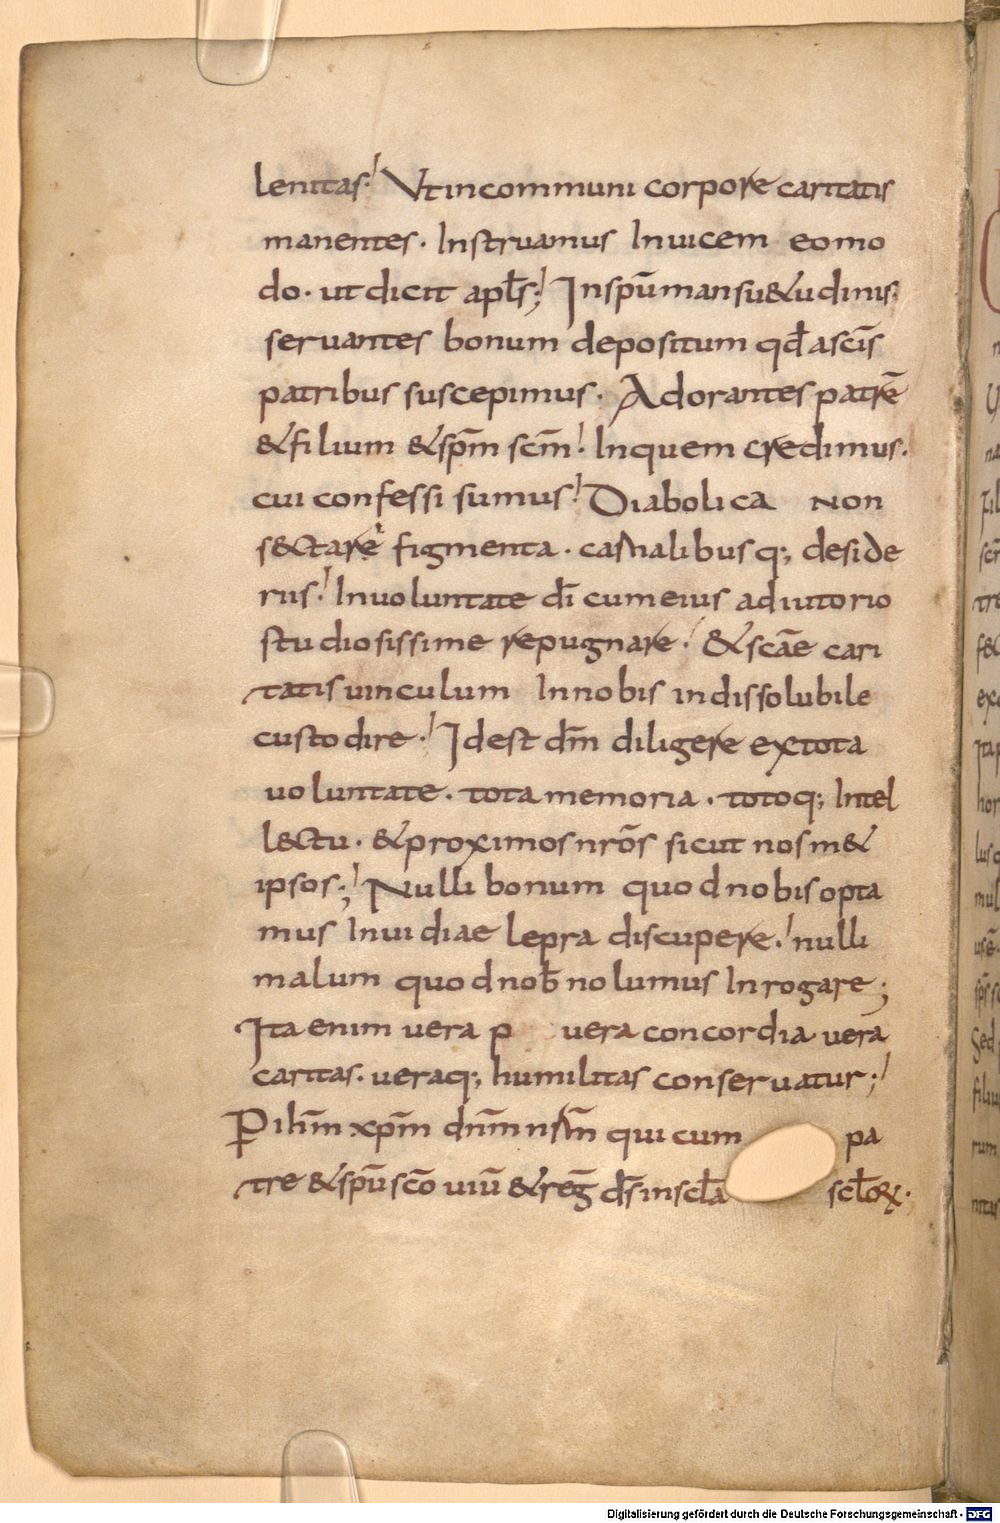 lenitas· Ut in communi corpore caritatis
manentes · Instruamus Inuicem eomo
do · ut dicit apłs; In spū mansu&udinis·
seruantes bonum depositum qđ a sc̄is
patribus suscepimus · Adorantes patrē
& filium & sp̄m sc̄m · In quem credimus ·
cui confessi sumus · Diabolica non
sectare figmenta · carnalibusq; deside
riis · In uoluntate dī cum eius adiutorio
studiosissime repugnare · & sc̄ae cari
tatis uinculum In nobis indissolubile
custodire · Id est dm̄ diligere ex tota
uoluntate · tota memoria · totoq; Intel
lectu · & proximos nrōs sicut nosm&
ipsos; Nulli bonum quod nobis opta
mus Inuidiae lepra discupere · nulli
malum quod nob̄ nolumus Inrogare;
Ita enim uera p uera concordia uera
caritas · ueraq; humilitas conseruatur;
P ihm̄ xp̄m dnm̄ nrm̄ qui cum pa
tre & spū scō uiū & reḡ ds̄ in scła scłoꝝ ·
Digitalisierung gefördert durch die Deutsche Forschungsgemeinschaft - DFG